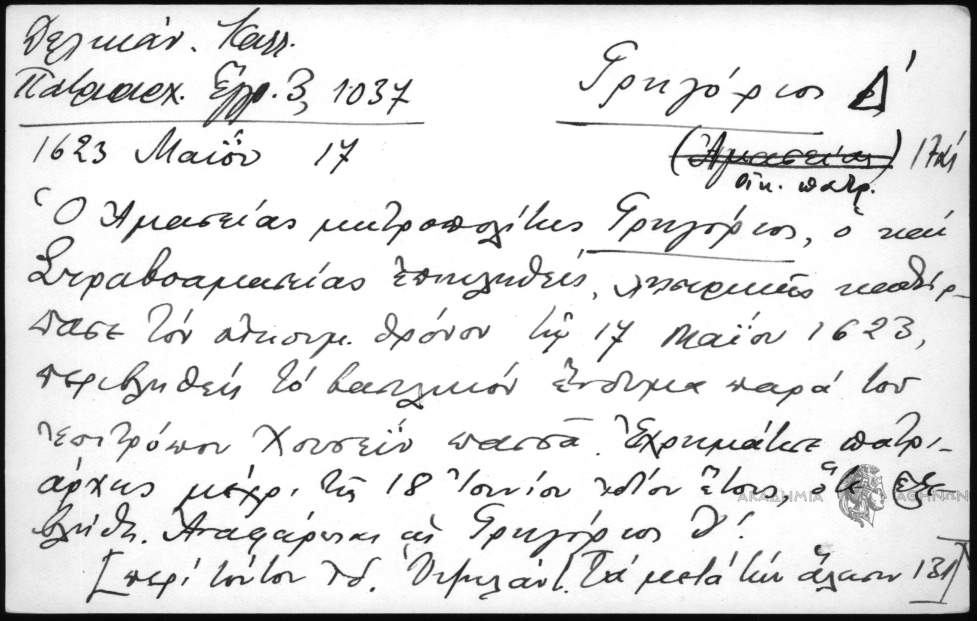 Δελικάν. Καλλ.
Πατριαρχ. Ἔγγρ. 3, 1037
Γρηγόριος Δ΄
1623 Μαΐου 17
(Ἀμασείας)
οἰκ. πατρ.
Ὁ Ἀμασείας μητροπολίτης Γρηγόριος, ὁ καί
Στραβοαμασείας ἐπικληθείς, καθήρ-
πασε τόν οἰκουμ. θρόνον τῇ 17 Μαΐου 1623,
περιβληθείς τό βασιλικόν ἔνδυμα παρά τοῦ
ἐπιτρόπου Χουσεΐν πασσᾶ. Ἐχρημάτισε πατρι-
άρχης μέχρι τῆς 18 Ἰουνίου ἰδίου ἔτους, ὅτε ἐξε-
βλήθη. Ἀναφέρεται ὡς Γρηγόριος Δ΄.
[περί τούτου ἰδ. Τά μετά τήν ἅλωσιν 131]
ΑΚΑΔΗΜΙΑ ΑΘΗΝΩΝ